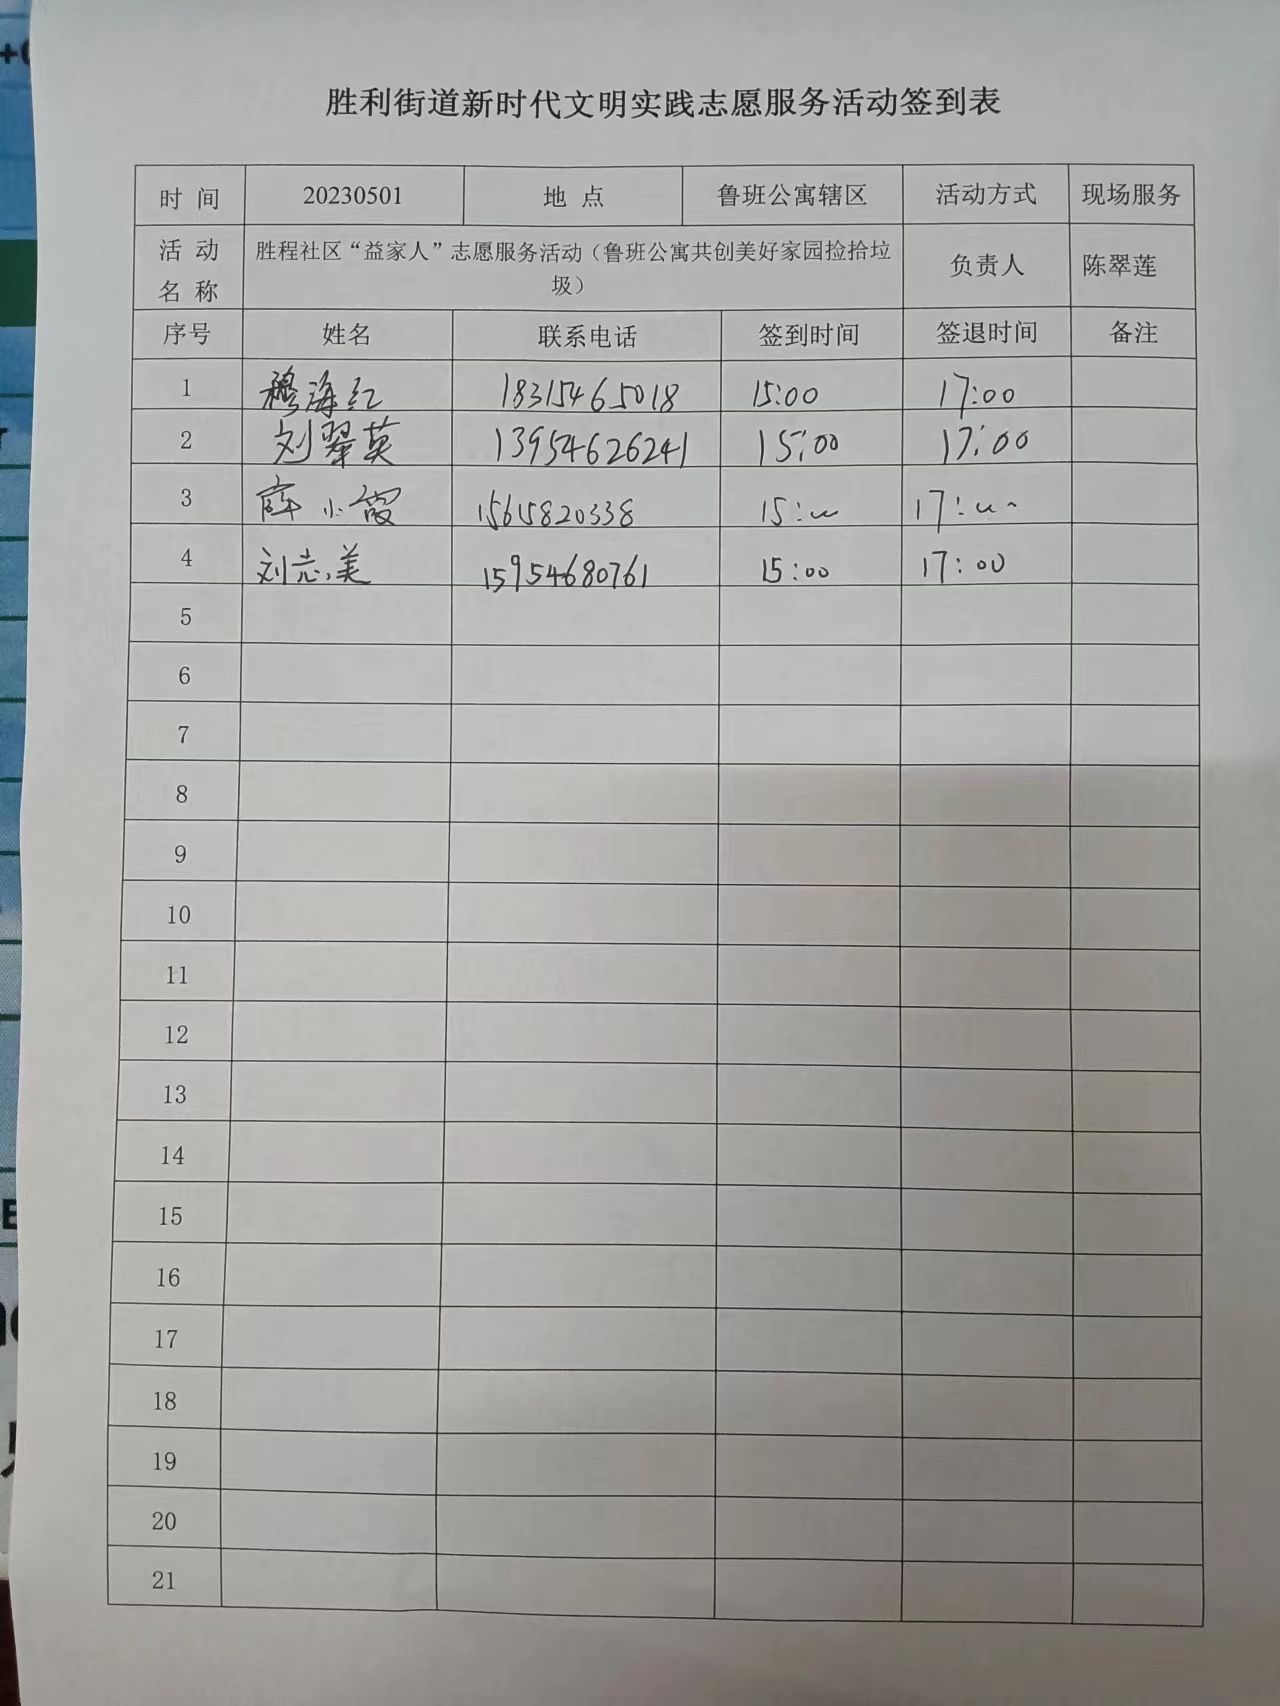 胜利街道新时代文明实践志愿服务活动签到表
时 间 20230501 地 点 鲁班公寓辖区 活动方式 现场服务
活 动 名 称 胜程社区“益家人”志愿服务活动（鲁班公寓共创美好家园捡拾垃
圾） 负责人 陈翠莲
序号 姓名 联系电话 签到时间 签退时间 备注
1 穆海红 18315465018 15:00 17:00
2 刘翠英 13954626241 15:00 17:00
3 薛小霞 15615820338 15:00 17:00
4 刘志美 15954680761 15:00 17:00
5
6
7
8
9
10
11
12
13
14
15
16
17
18
19
20
21